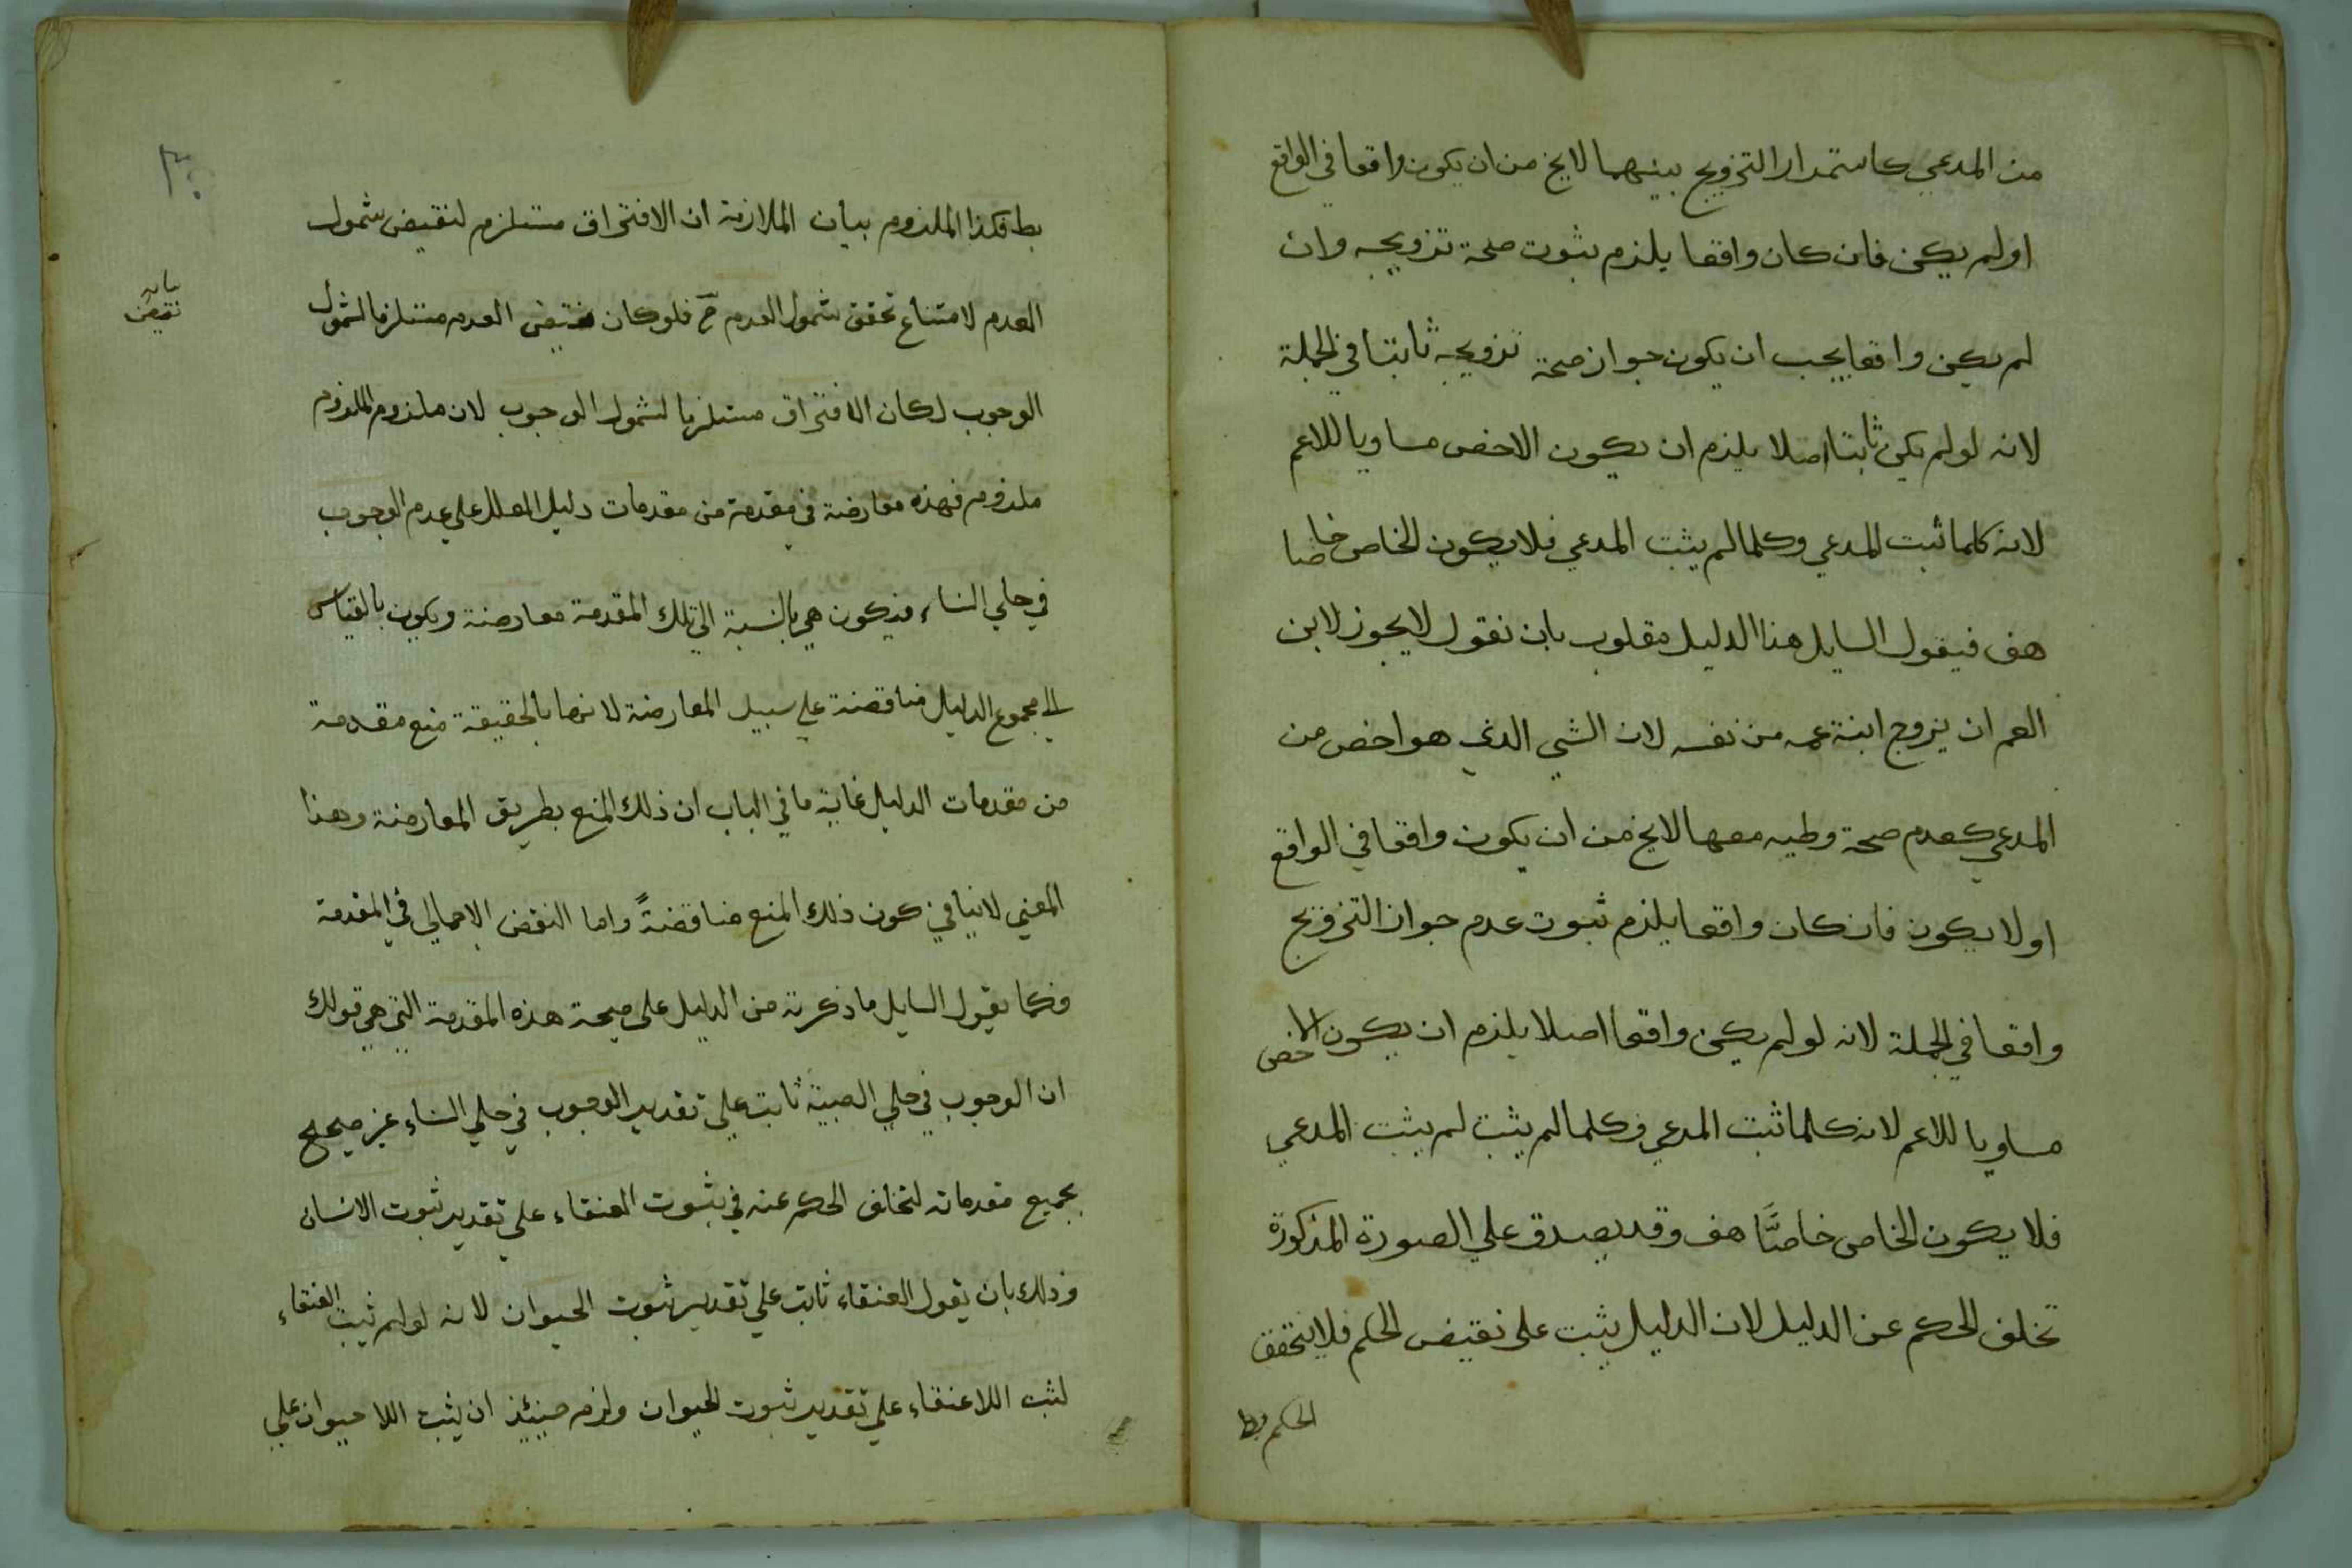 من المدعي كاستمرار التزويج بينهما لايخ من ان يكون واقعا في الواقع
اولم يكن فان كان واقعا يلزم ثبوت صحة تزويجه وان
لم يكن واقعا يجب ان يكون جواز صحة تزويجه ثابتا في الجملة
لانه لولم يكن ثابتا اصلا يلزم ان يكون الاخص مساويا للاعم
لانه كلما ثبت المدعي وكلما لم يثبت المدعي فلا يكون الخاص خاصا
هف فيقول السايل هذا الدليل مقلوب بان نقول لايجوز لابن
العم ان يزوج ابنة عمه من نفسه لان الشي الذي هو اخص من
المدعي كعدم صحة وطيه معها لايخ من ان يكون واقعا في الواقع
اولا يكون فان كان واقعا يلزم ثبوت عدم جواز التزويج
واقعا في الجملة لانه لولم يكن واقعا اصلا يلزم ان يكون الاخص
مساويا للاعم لانه كلما ثبت المدعي وكلما لم يثبت لم يثبت المدعي
فلا يكون الخاص خاصًّا هف وقد يصدق علي الصورة المذكورة
تخلف الحكم عن الدليل لان الدليل يثبت على نقيض الحكم فلا يتحقق
الحكم
بط فكذا الملزوم بيان الملازمة ان الافتراق مستلزم لنقيض شمول
العدم لامتناع تحقق شمول العدم ح فلو كان نقيض العدم مستلزما لشمول
نقيض
الوجوب لكان الافتراق مستلزما لشمول الوجوب لان ملزوم الملزوم
ملزوم فهذه معارضة في مقدمة من مقدمات دليل المعلل علي عدم الوجوب
في حلي النساء فيكون هي بالنسبة الي تلك المقدمة معارضة ويكون بالقياس
الي مجموع الدليل مناقضة علي سبيل المعارضة لانها بالحقيقة منع مقدمة
من مقدمات الدليل غاية ما في الباب ان ذلك المنع بطريق المعارضة وهذا
المعني لاينافي كون ذلك المنع مناقضةً واما النقض الاجمالي في المقدمة
فكما يقول السايل ما ذكرته من الدليل على صحة هذه المقدمة التي هي قولك
ان الوجوب في حلي الصبية ثابت علي تقدير الوجوب في حلي النساء غير صحيح
بجميع مقدماته لتخلف الحكم عنه في ثبوت العنقاء علي تقدير ثبوت الانسان
وذلك بان يقول العنقاء ثابت علي تقدير ثبوت الحيوان لانه لولم يثبت العنقاء
لثبت اللاعنقاء علي تقدير ثبوت الحيوان ولزم حينئذ ان يثبت اللا حيوان علي